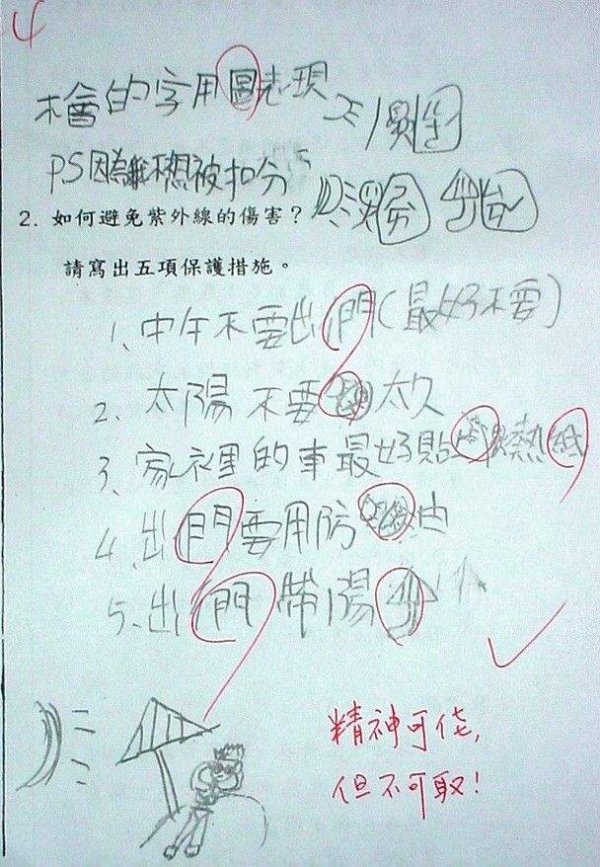 4
不會的字用圖表現
PS因為我不想被扣分
2. 如何避免紫外線的傷害？
請寫出五項保護措施。
1、中午不要出門(最好不要)
2、太陽不要太久
3、家裡的車最好貼熱紙
4、出門要用防油
5、出門帶陽
精神可佳,
但不可取!